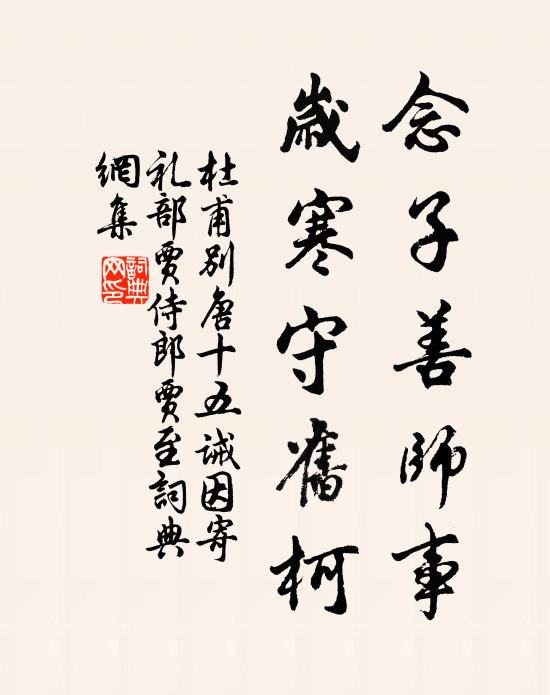 念子善師事
歲寒守舊柯
杜甫別唐十五誡因寄
礼部賈侍郎賈至詞典
網集
詞典
网印